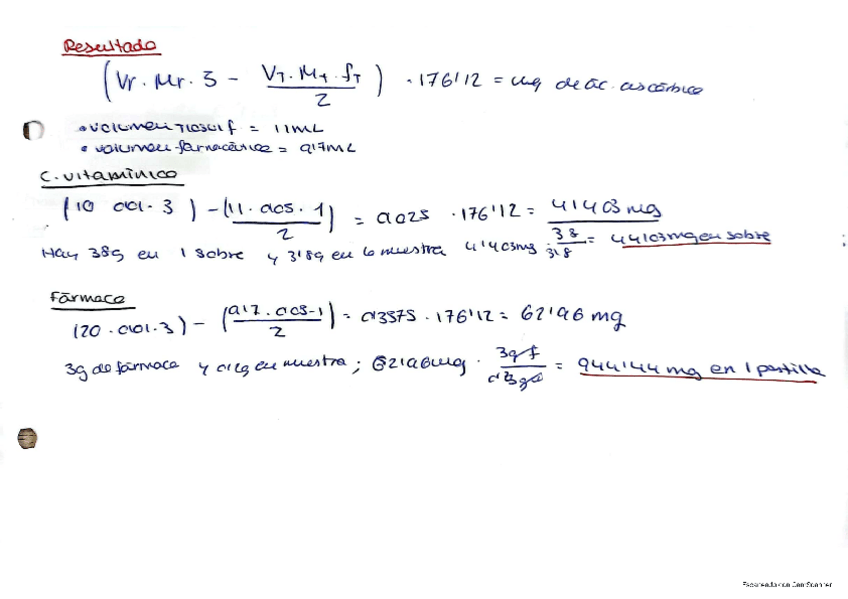 Resultado
(Vr · Mr · 3 - VT · MT · fT / 2) · 176'12 = mg de ác. ascórbico
• volumen tiosulf = 11mL
• volumen farmacéutico = 0'17mL
C. vitamínico
(10 · 0'01 · 3) - (11 · 0'05 · 1 / 2) = 0'025 · 176'12 = 4'403 mg
Hay 38g en 1 sobre y 3'8g en la muestra 4'403mg · 38 / 3'8 = 44'03mg en sobre
Fármaco
(20 · 0'01 · 3) - (0'17 · 0'05 · 1 / 2) = 0'3575 · 176'12 = 62'96 mg
3g de fármaco y en muestra ; 62'96mg · 3g f / = 944'44 mg en 1 pastilla
Escaneado con CamScanner